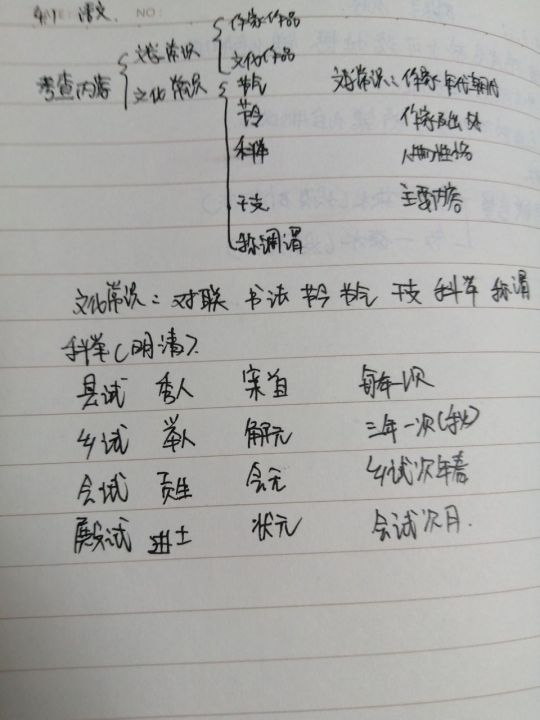 4.1 语文.
作家作品
文学常识
文化作品
考查内容
文化常识
节气
文学常识：作家年代朝代
节令
作家及出处
科举
人物性格
干支
主要内容
称谓
文化常识：对联 书法 节令 节气 干支 科举 称谓
科举(明清).
县试 秀人 案首 每年一次
乡试 举人 解元 三年一次(秋)
会试 贡生 会元 乡试次年春
殿试 进士 状元 会试次月.